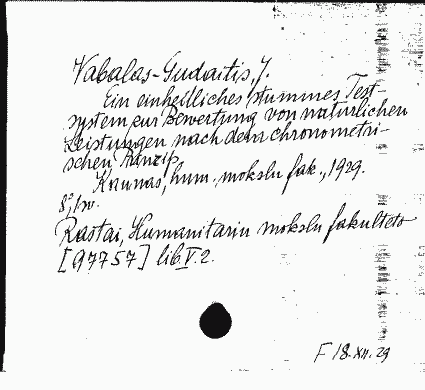 Vabalas-Gudaitis, J.
Ein einheitliches stummes Test
system zur Bewertung von naturlichen
Leistungen nach dem chronometri-
schen Prinzip.
Kaunas, hum. mokslu fak., 1929.
8°,
Rastai, Humanitariu mokslu fakulteto
[97757] lib. V. 2.
F 18. XII. 29